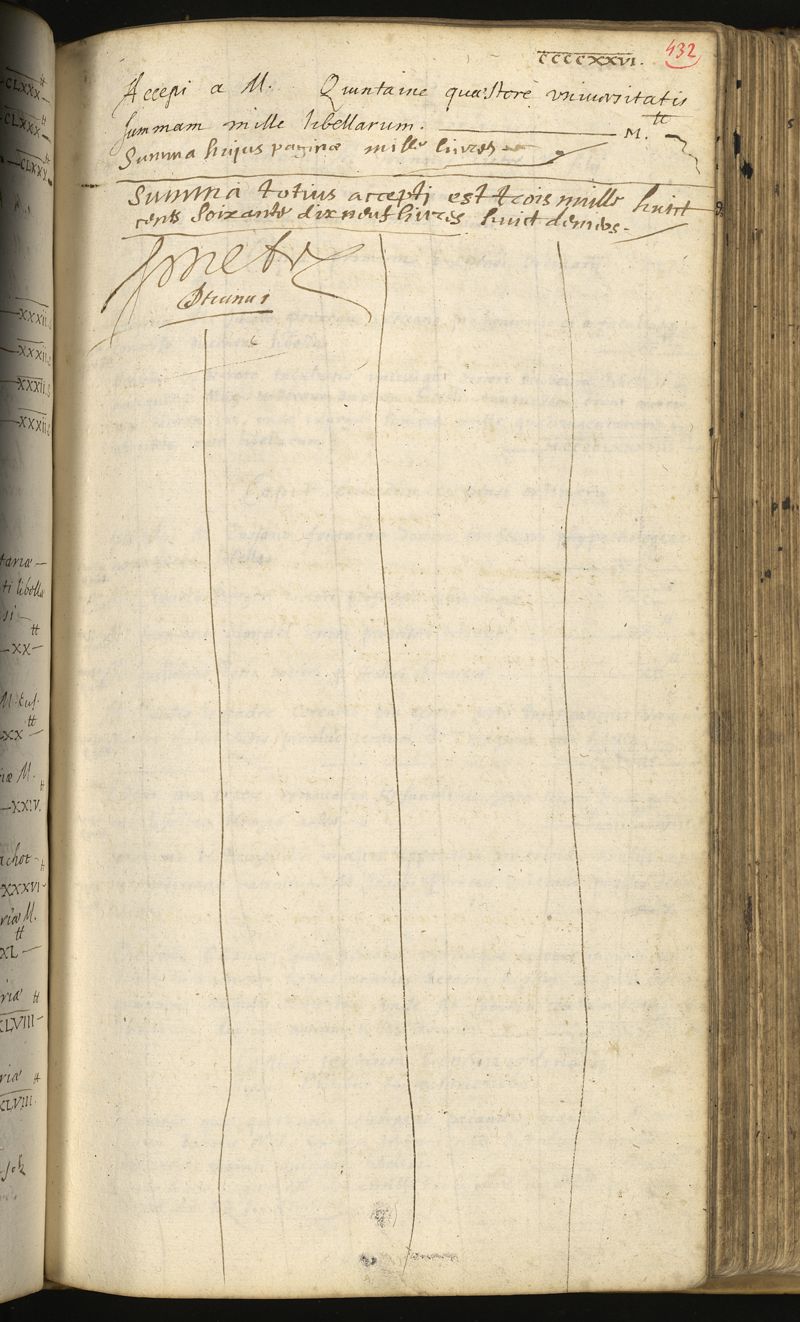 CCCCXXVI. 432
Accepi a M. Quintaine quæstore vniuersitatis
summam mille libellarum. M.tt
Summa hujus paginæ mille livres
Summa totius accepti est trois mille huict
cents soixante dix neuf livres huict deniers.
CLXXX tt
CLXXX tt
CLXX
XXXII
XXXII
XXXII
XXXII
tariæ
ti libellæ
tt
XX
tt
XX
iæ M. tt
XXIV.
achot tt
XXXVI
riæ M.
tt
XL
riæ tt
CLVIII
riæ tt
CLVIII.